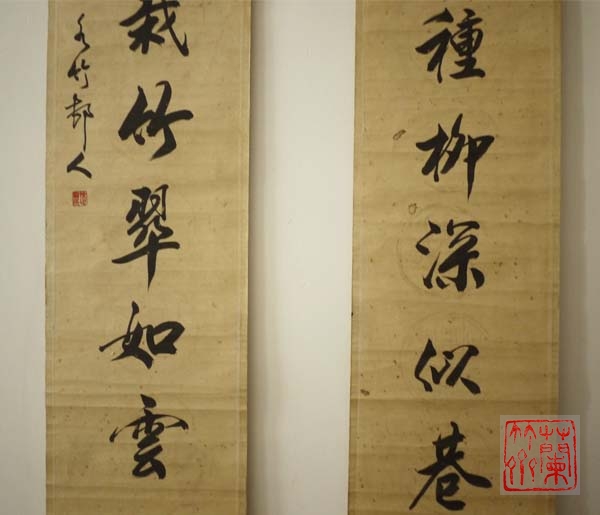 種柳深似巷
栽竹翠如雲
水竹邨人
蘭竹